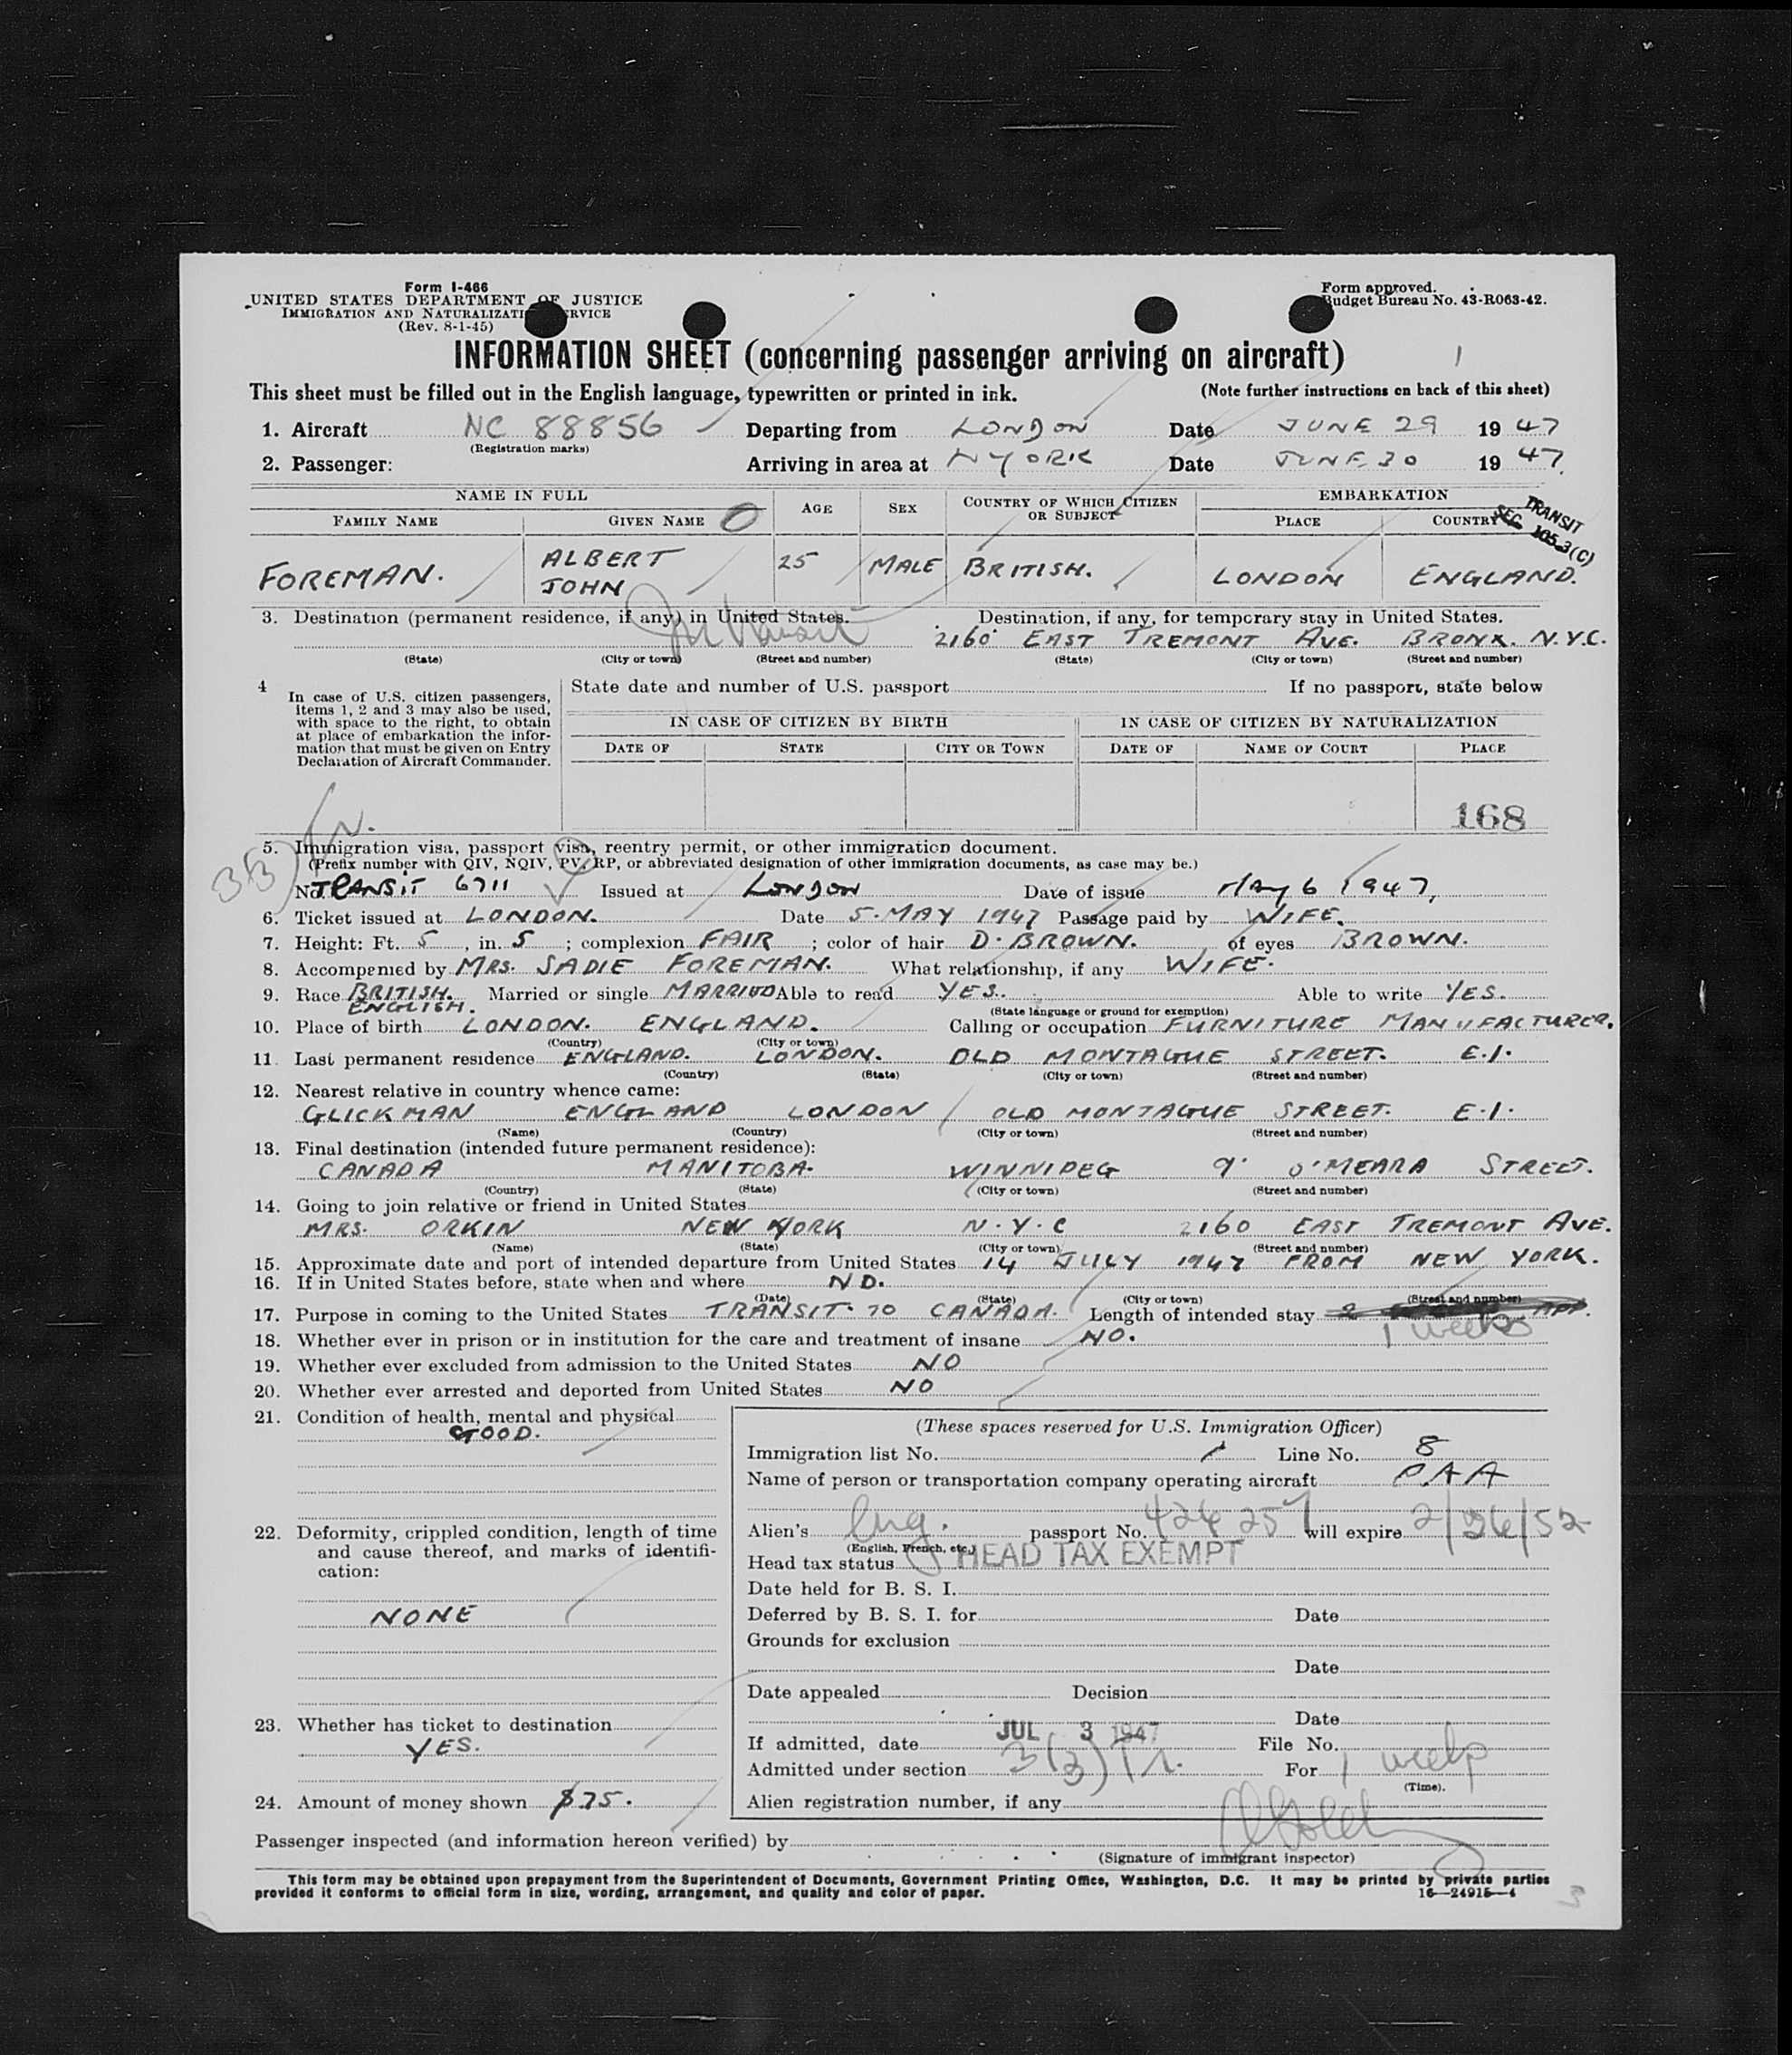 Form I-466
UNITED STATES DEPARTMENT OF JUSTICE
IMMIGRATION AND NATURALIZATION SERVICE
(Rev. 8-1-45)
Form approved.
Budget Bureau No. 43-R063-42.
INFORMATION SHEET (concerning passenger arriving on aircraft) 1
This sheet must be filled out in the English language, typewritten or printed in ink. (Note further instructions on back of this sheet)
1. Aircraft NC 88856 Departing from LONDON Date JUNE 29 19 47
(Registration marks)
2. Passenger: Arriving in area at NYORK Date JUNE 30 19 47.
NAME IN FULL AGE SEX COUNTRY OF WHICH CITIZEN OR SUBJECT EMBARKATION
FAMILY NAME GIVEN NAME PLACE COUNTRY
TRANSIT
SEC 105.3(C)
FOREMAN. ALBERT JOHN 25 MALE BRITISH. LONDON ENGLAND.
3. Destination (permanent residence, if any) in United States. Destination, if any, for temporary stay in United States.
2160 EAST TREMONT AVE. BRONX. N.Y.C.
(State) (City or town) (Street and number) (State) (City or town) (Street and number)
4 In case of U.S. citizen passengers, items 1, 2 and 3 may also be used, with space to the right, to obtain at place of embarkation the information that must be given on Entry Declaration of Aircraft Commander.
State date and number of U.S. passport If no passport, state below
IN CASE OF CITIZEN BY BIRTH IN CASE OF CITIZEN BY NATURALIZATION
DATE OF STATE CITY OR TOWN DATE OF NAME OF COURT PLACE
168
5. Immigration visa, passport visa, reentry permit, or other immigration document.
(Prefix number with QIV, NQIV, PV, RP, or abbreviated designation of other immigration documents, as case may be.)
No. TRANSIT 6711 Issued at LONDON Date of issue May 6 1947,
6. Ticket issued at LONDON. Date 5. MAY 1947 Passage paid by WIFE.
7. Height: Ft. 5, in. 5; complexion FAIR; color of hair D. BROWN. of eyes BROWN.
8. Accompanied by MRS. SADIE FOREMAN. What relationship, if any WIFE.
9. Race BRITISH. ENGLISH. Married or single MARRIED Able to read YES. Able to write YES.
(State language or ground for exemption)
10. Place of birth LONDON. ENGLAND. Calling or occupation FURNITURE MANUFACTURER.
(Country) (City or town)
11. Last permanent residence ENGLAND. LONDON. OLD MONTAGUE STREET. E.1.
(Country) (State) (City or town) (Street and number)
12. Nearest relative in country whence came:
GLICKMAN ENGLAND LONDON OLD MONTAGUE STREET. E.1.
(Name) (Country) (City or town) (Street and number)
13. Final destination (intended future permanent residence):
CANADA MANITOBA. WINNIPEG 9. O'MEARA STREET.
(Country) (State) (City or town) (Street and number)
14. Going to join relative or friend in United States
MRS. ORKIN NEW YORK N.Y.C 2160 EAST TREMONT AVE.
(Name) (State) (City or town) (Street and number)
15. Approximate date and port of intended departure from United States 14 JULY 1947 FROM NEW YORK.
16. If in United States before, state when and where NO.
(Date) (State) (City or town) (Street and number)
17. Purpose in coming to the United States TRANSIT. TO CANADA. Length of intended stay 2 APP.
1 weeks
18. Whether ever in prison or in institution for the care and treatment of insane NO.
19. Whether ever excluded from admission to the United States NO
20. Whether ever arrested and deported from United States NO
21. Condition of health, mental and physical
GOOD.
22. Deformity, crippled condition, length of time and cause thereof, and marks of identification:
NONE
23. Whether has ticket to destination
YES.
24. Amount of money shown $75.
(These spaces reserved for U.S. Immigration Officer)
Immigration list No. 1 Line No. 8
Name of person or transportation company operating aircraft PAA
Alien's Eng. passport No. 424257 will expire 2/26/52
(English, French, etc.)
Head tax status HEAD TAX EXEMPT
Date held for B. S. I.
Deferred by B. S. I. for Date
Grounds for exclusion
Date
Date appealed Decision
Date
If admitted, date JUL 3 1947 File No.
Admitted under section 3(3) Tr. For 1 week
(Time).
Alien registration number, if any
Passenger inspected (and information hereon verified) by
(Signature of immigrant inspector)
This form may be obtained upon prepayment from the Superintendent of Documents, Government Printing Office, Washington, D.C. It may be printed by private parties
provided it conforms to official form in size, wording, arrangement, and quality and color of paper. 16—24915-4